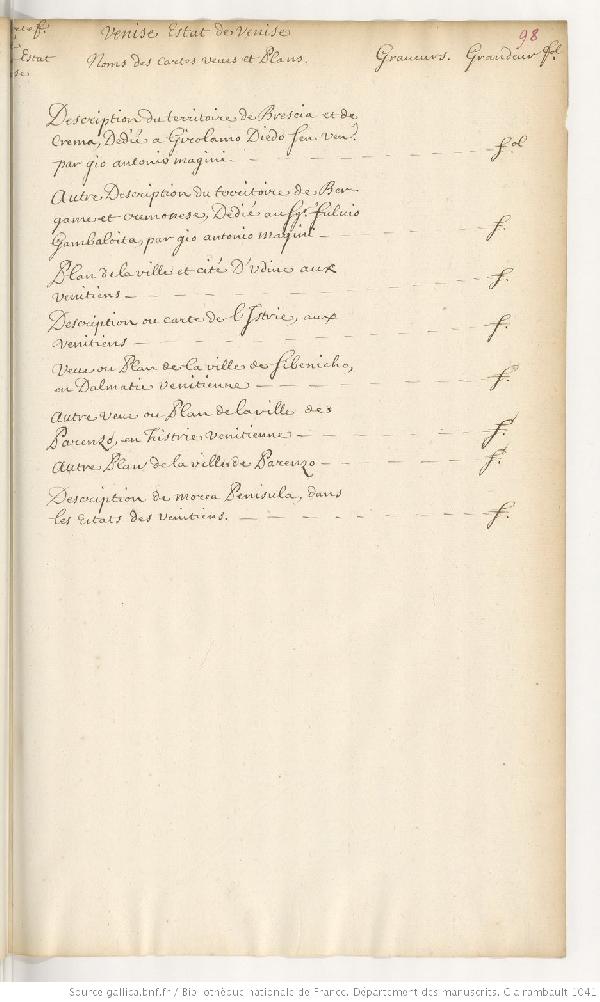 Venise Estat de Venise
98
Noms des Cartes veues et Plans. Graueurs. Grandeur fol.
Estat
Description du territoire de Brescia et de
Crema, Dédié a Girolamo Diedo sen. ven.
par gio antonio magini - - - - fol
Autre Description du territoire de Ber
game et cremonese, Dedié au Sgr. fuluio
Gambaloita, par gio antonio magini - - - - f.
Plan de la ville et cité D'vdine aux
venitiens - - - - f.
Description ou carte de l'Istrie, aux
venitiens - - - - f.
Veue ou Plan de la ville de Sibenicho,
en Dalmatie venitienne - - - - f.
Autre veue ou Plan de la ville de
Parenzo, en l'istrie venitienne - - - - f.
Autre Plan de la ville de Parenzo - - - - f.
Description de morea Penisula, dans
les estats des venitiens. - - - - f.
Source gallica.bnf.fr / Bibliothèque nationale de France. Département des manuscrits. Clairambault 1041